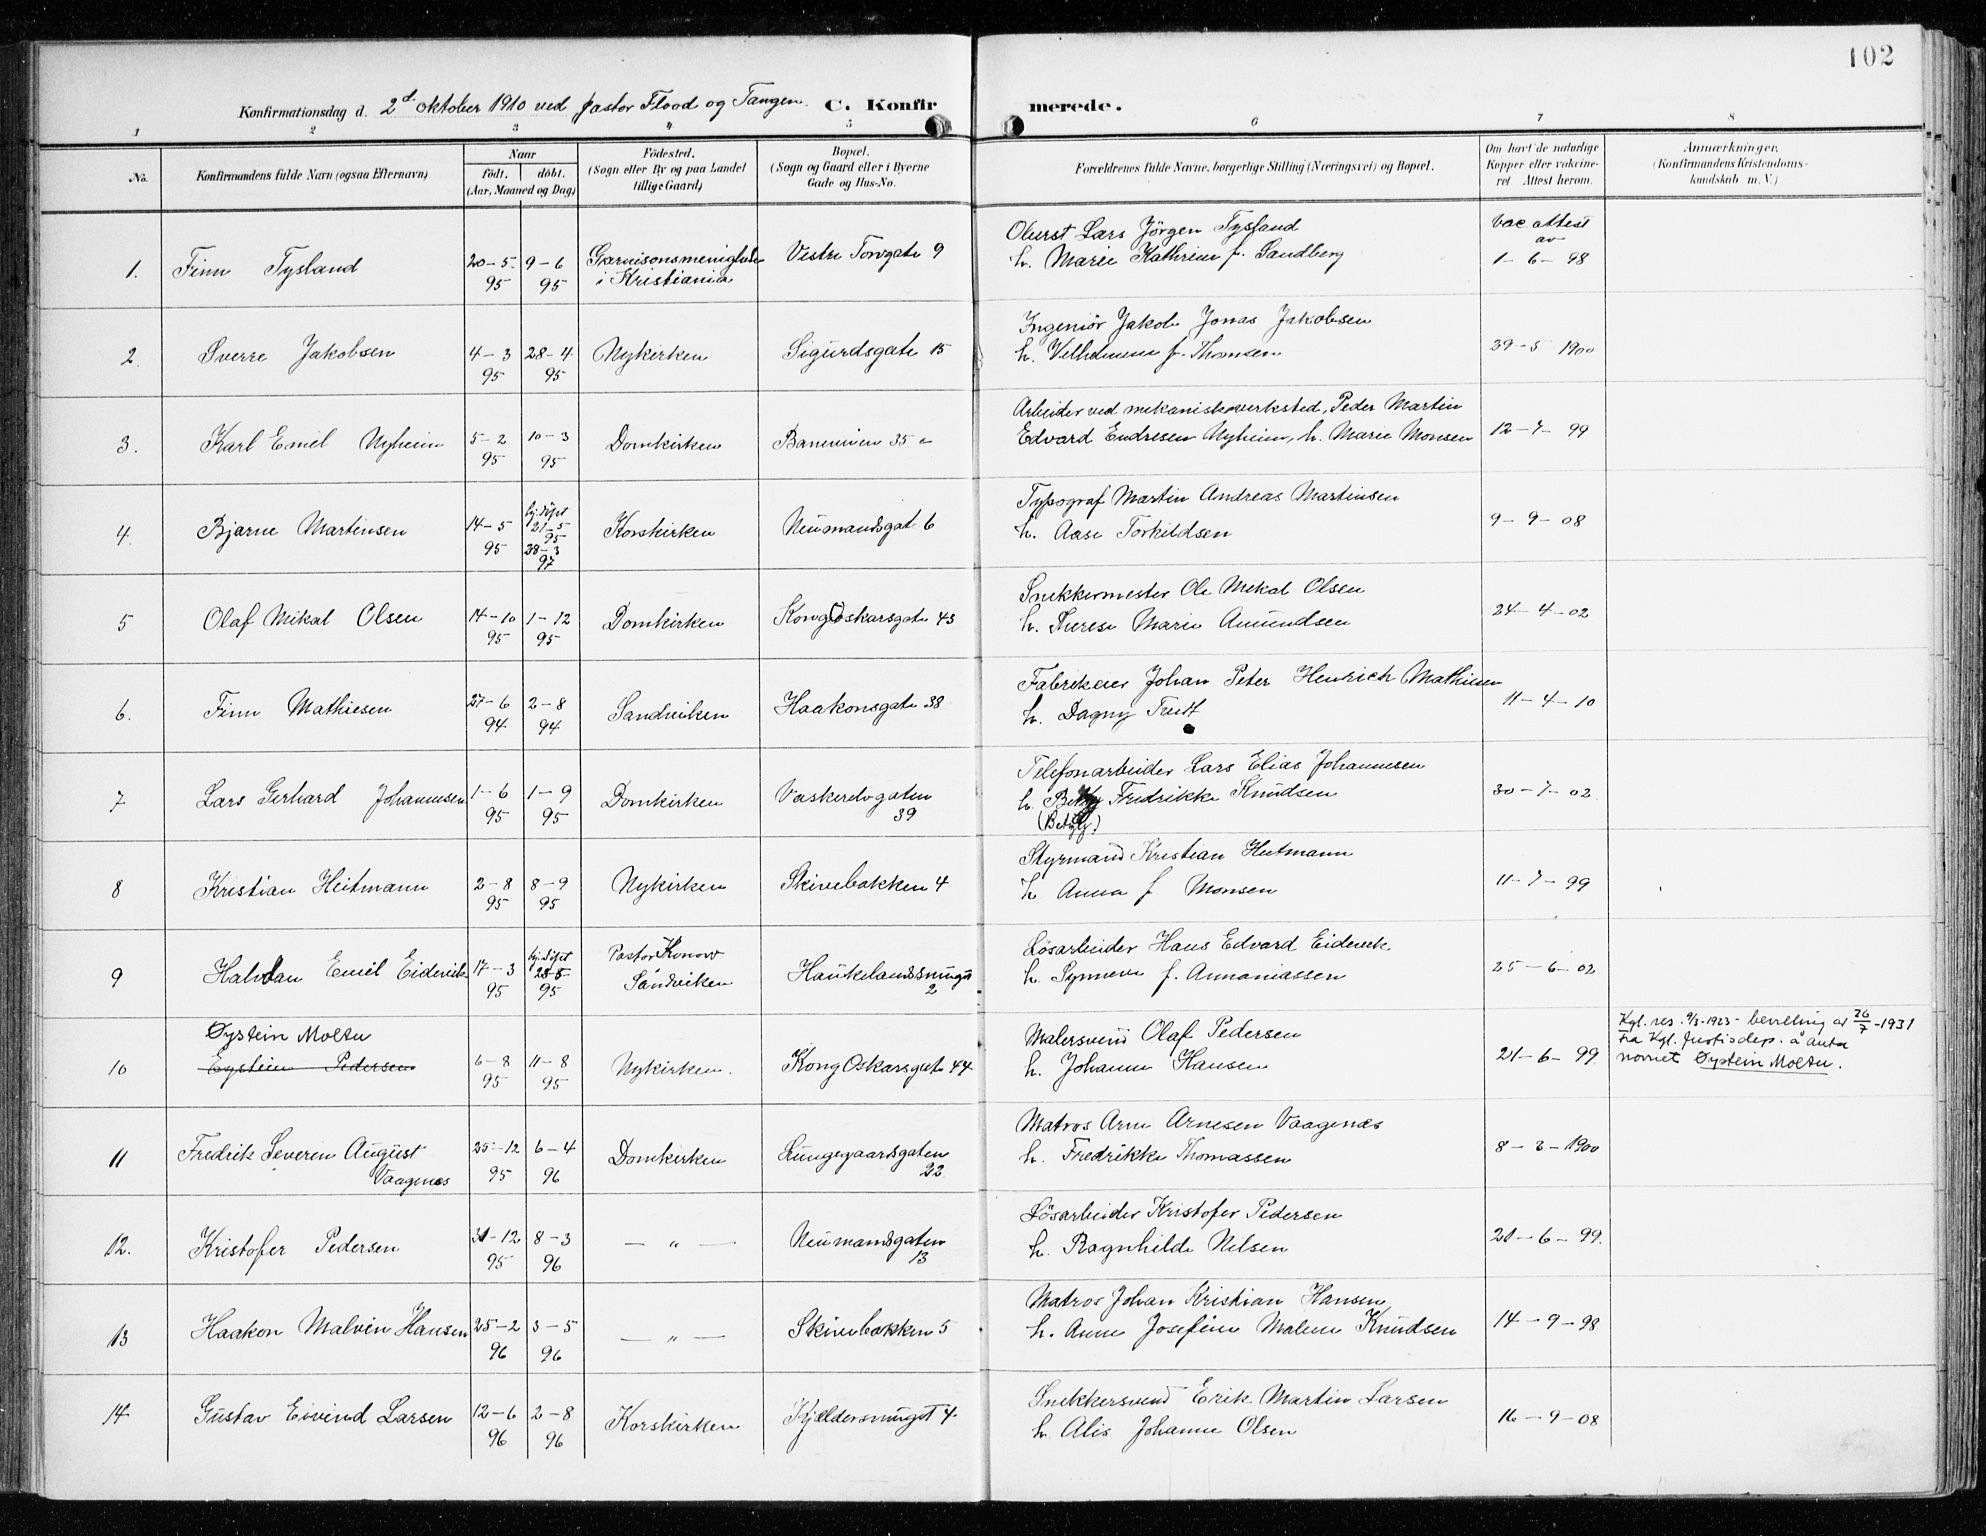 102
Konfirmationsdag d. 2d oktober 1910 ved pastor Flood og Tangen. C. Konfirmerede.
1 2 3 4 5 6 7 8
No.
Konfirmandens fulde Navn (ogsaa Efternavn)
Naar
födt. döbt.
(Aar, Maaned og Dag)
Födested.
(Sogn eller By og paa Landet
tillige Gaard)
Bopæl.
(Sogn og Gaard eller i Byerne
Gade og Hus-No.
Forældrenes fulde Navne, borgerlige Stilling (Næringsvei) og Bopæl.
Om havt de naturlige
Kopper eller vakcine-
ret. Attest herom.
Anmærkninger.
(Konfirmandens Kristendoms-
kundskab m. V.)
1. Finn Tysland
20-5 95
9-6 95
Garnisonsmenigheden
i Kristiania
Vestre Torvgate 9
Oberst Lars Jörgen Tysland
h. Marie Kathrine f. Sandberg
Vac. attest
av
1-6-98
2. Sverre Jakobsen
4-3 95
28-4 95
Nykirken
Sigurdsgate 15
Ingeniör Jakob Jonas Jakobsen
h. Vilhelmine f. Thomsen
39-5 1900
3. Karl Emil Nyheim
5-2 95
10-3 95
Domkirken
Baneveien 35 a
Arbeider ved mekaniskverksted, Peder Martin
Edvard Endresen Nyheim, h. Marie Monsen
12-7-99
4. Bjarne Martinsen
14-5 95
hj. döpt
21-5 95
28-3 97
Korskirken
Neumandsgate 6
Typograf Martin Andreas Martinsen
h. Aase Torkildsen
9-9-08
5 Olaf Mikal Olsen
14-10 95
1-12 95
Domkirken
Kong Oskarsgate 43
Snekkermester Ole Mikal Olsen
h. Therese Marie Amundsen
24-4-02
6. Finn Mathiesen
27-6 94
2-8 94
Sandviken
Haakonsgate 38
Fabrikeier Johan Peter Henrich Mathiesen
h. Dagny
11-4-10
7 Lars Gerhard Johannesen
1-6 95
1-9 95
Domkirken
Vaskerelvgaten
39
Telefonarbeider Lars Elias Johannesen
h. Fredrikke Knudsen
(Betzy)
30-7-02
8 Kristian Heitmann
2-8 95
8-9 95
Nykirken
Skivebakken 4
Styrmand Kristian Heitmann
h Anna f Monsen
11-7-99
9 Halvdan Emil Eidevik
17-3 95
hj. döpt
28-5 95
Pastor Konow
Sandviken
Haukelandssmuget
2
Lösarbeider Hans Edvard Eidevik
h. Synneve f. Annaniassen
25-6-02
10 Øystein Moltu
Eystein Pedersen
6-8 95
11-8 95
Nykirken.
Kong Oskarsgate 44
Malersvend Olaf Pedersen
h. Johanne Hansen
21-6-99
Kgl. res. 9/3-1923 - bevilling av 26/7-1931
fra Kgl. Justisdep. å anta
navnet Øystein Moltu.
11 Fredrik Severin August
Vaagenes
25-12 95
6-4 96
Domkirken
Lungegaardsgaten
22
Matros Arne Arnesen Vaagenæs
h. Fredrikke Thomassen
8-3-1900
12. Kristofer Pedersen
31-12 95
8-3 96
— „ —
Neumandsgaten
13
Lösarbeider Kristofer Pedersen
h. Ragnhilde Nilsen
21-6-99.
13 Haakon Malvin Hansen
25-2 96
3-5 96
— „ —
Skivebakken 5
Matros Johan Kristian Hansen
h. Anne Josefine Malene Knudsen
14-9-98
14 Gustav Eivind Larsen
12-6 96
2-8 96
Korskirken
Kjældersmuget 4.
Snekkersvend Erik Martin Larsen
h. Alis Johanne Olsen
16-9-08